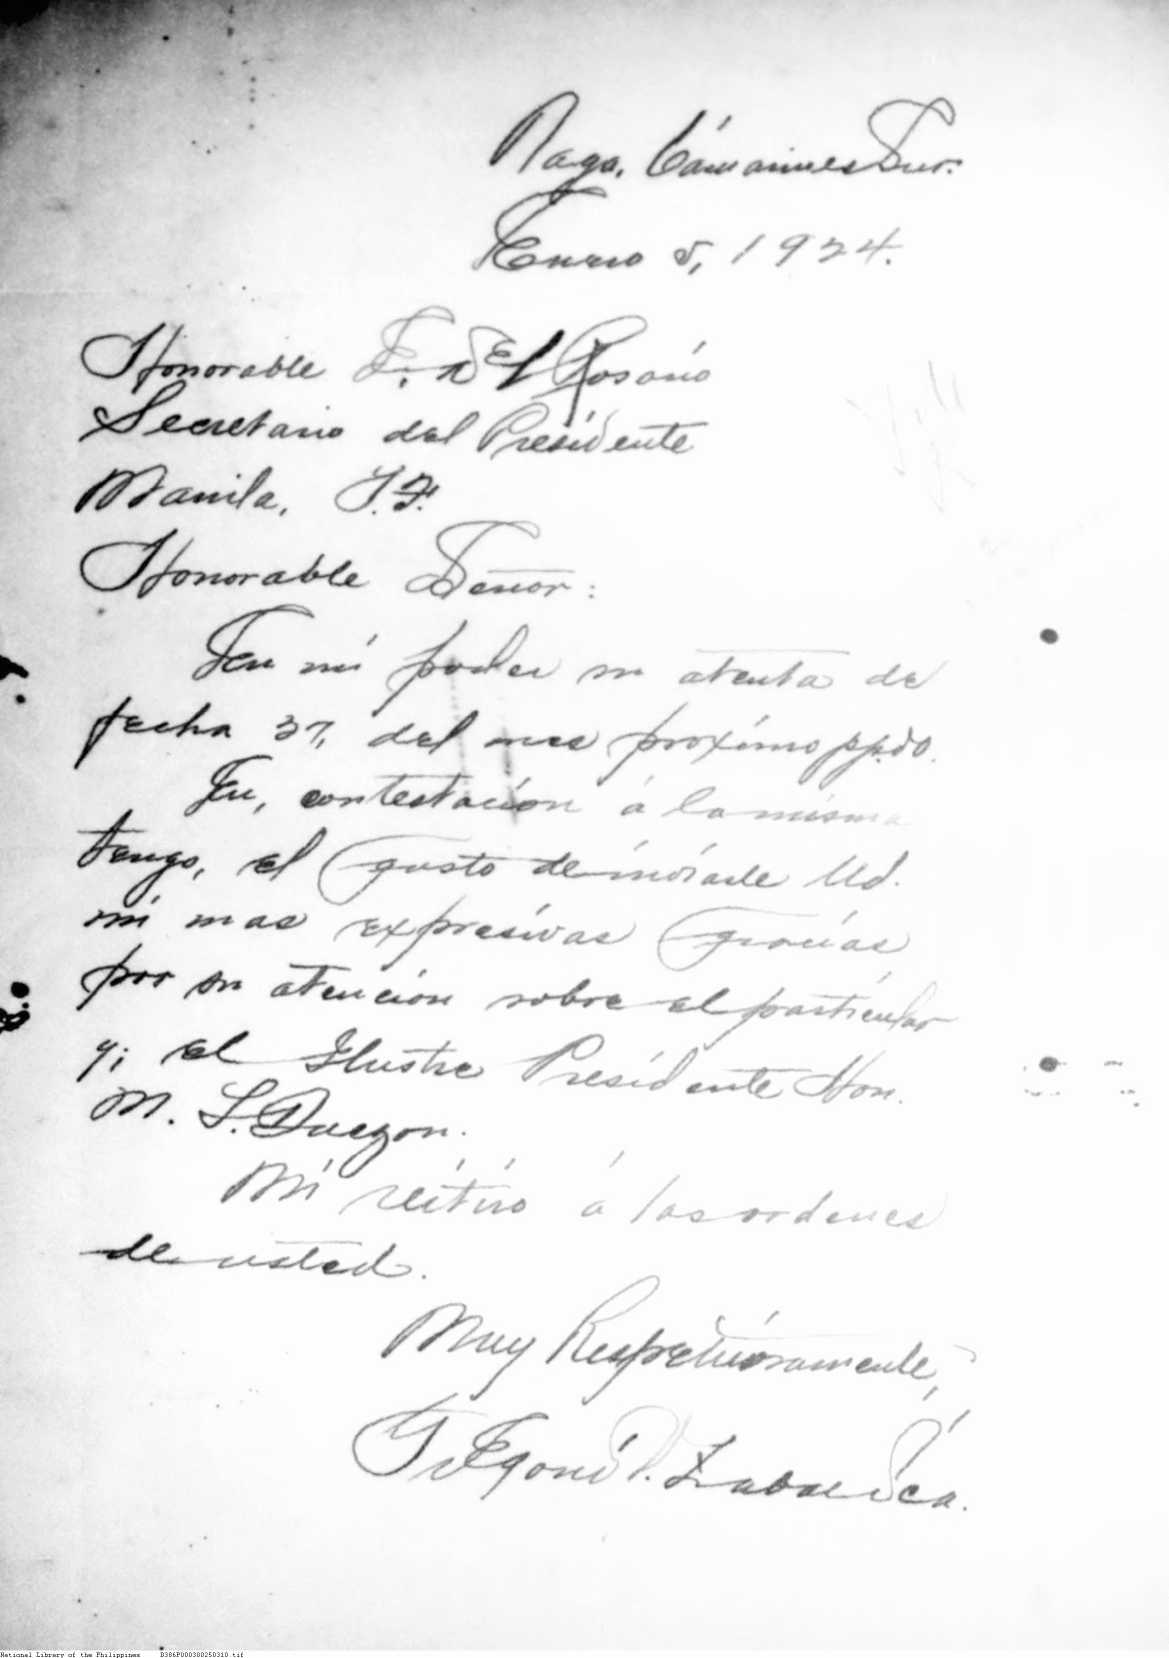 Naga, Camarines Sur.
Enero 5, 1924.
Honorable F. del Rosario
Secretario del Presidente
Manila, I.F.
Honorable Señor:
En mi poder su atenta de
fecha 37, del mes próximo ppdo.
En, contestación á la misma
tengo, el gusto de Ud.
mi mas expresivas gracias
por su atención sobre el particular
y; el Ilustre Presidente Hon.
M. L. Quezon.
Mi reitiro á las ordenes
de usted.
Muy Respetuósamente,
P.
National Library of the Philippines B386P000300250310.tif